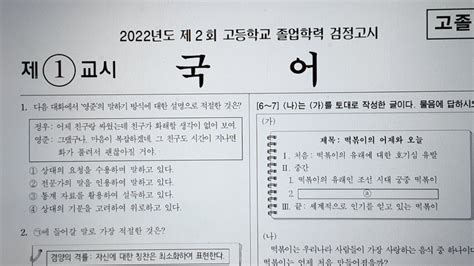 2022년도 제 2 회 고등학교 졸업학력 검정고시
고졸
제 1 교시 국 어
1. 다음 대화에서 '영준'의 말하기 방식에 대한 설명으로 적절한 것은?
정우: 어제 친구랑 싸웠는데 친구가 화해할 생각이 없어 보여.
영준: 그랬구나. 마음이 복잡하겠네. 그 친구도 시간이 지나면
화가 풀려서 괜찮아질 거야.
① 상대의 요청을 수용하며 말하고 있다.
② 전문가의 말을 인용하며 말하고 있다.
③ 통계 자료를 활용하여 설득하고 있다.
④ 상대의 기분을 고려하여 위로하고 있다.
2. ㉠에 들어갈 말로 가장 적절한 것은?
겸양의 격률: 자신에 대한 칭찬은 최소화하여 표현한다.
[6~7] (나)는 (가)를 토대로 작성한 글이다. 물음에 답하시오
(가)
제목: 떡볶이의 어제와 오늘
Ⅰ. 처음: 떡볶이의 유래에 대한 호기심 유발
Ⅱ. 중간
1. 떡볶이의 유래인 조선 시대 궁중 떡볶이
2. ⓐ
Ⅲ. 끝: 세계적으로 인기를 얻고 있는 떡볶이
(나)
떡볶이는 우리나라 사람들이 가장 사랑하는 음식 중 하나이